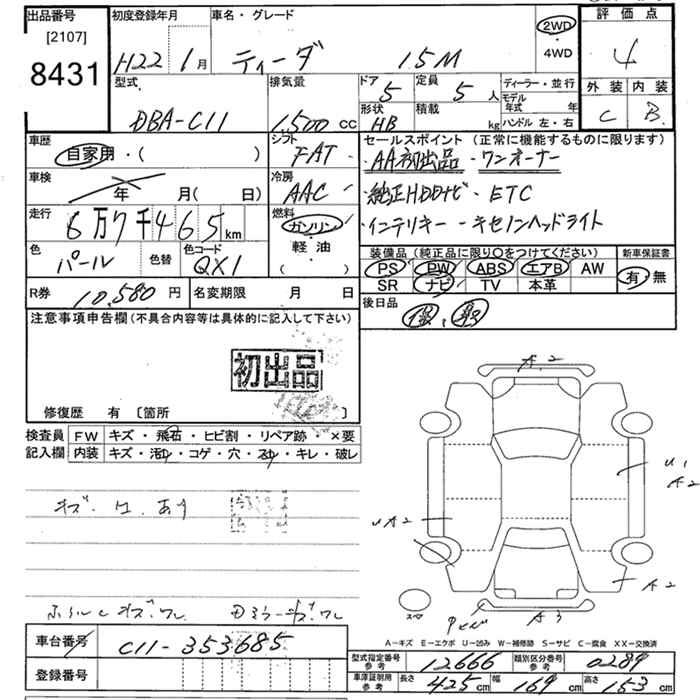 出品番号
[2107]
8431
初度登録年月 H22 1月
車名・グレード ティーダ 15M
2WD
・4WD
評価点
4
外装 内装
C B
型式 DBA-C11
排気量 1500 CC
ドア 5
定員 5 人
形状 HB
積載 kg
ディーラー・並行
モデル年式 年
ハンドル 左・右
車歴 自家用・( )
シフト FAT
車検 年 月( 日)
冷房 AAC
走行 6万7千465 km
燃料 ガソリン・軽油・( )
色 パール
色替
色コード QX1
セールスポイント (正常に機能するものに限ります)
・AA初出品・ワンオーナー
・純正HDDナビ・ETC
・インテリキー・キセノンヘッドライト
装備品 (純正品に限り○をつけてください)
PS PW ABS エアB AW
SR ナビ TV 本革
新車保証書
有・無
R券 10,580 円
名変期限 月 日
後日品
注意事項申告欄 (不具合内容等は具体的に記入して下さい)
初出品
修復歴 有 〔箇所 〕
検査員記入欄
FW キズ・飛石・ヒビ割・リペア跡・×要
内装 キズ・汚れ・コゲ・穴・スレ・キレ・破レ
A2
U1
A2
UA2
A2
A3
スペ
車台番号 C11-353685
登録番号
A－キズ E－エクボ U－凹み W－補修跡 S－サビ C－腐食 XX－交換済
型式指定番号 参考 12666
類別区分番号 参考 0289
車庫証明用 参考 長さ 425 cm 幅 169 cm 高さ 153 cm